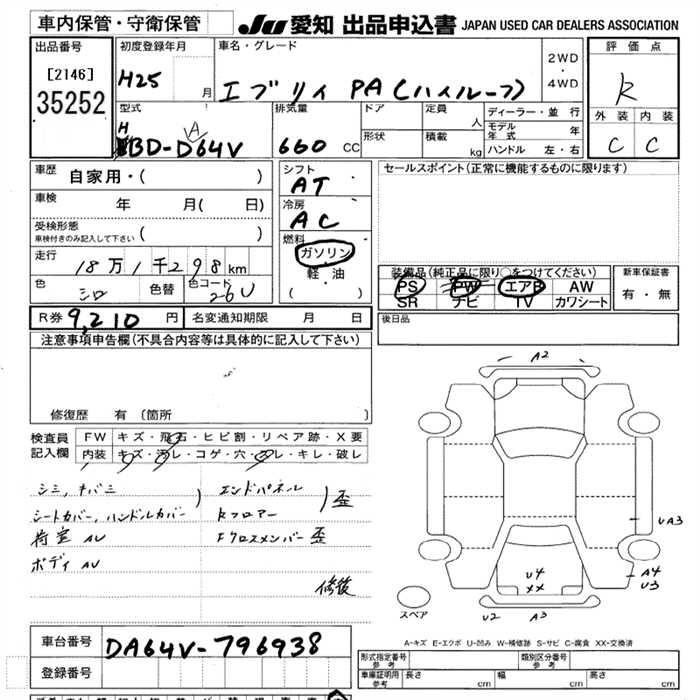 車内保管・守衛保管 JU 愛知 出品申込書 JAPAN USED CAR DEALERS ASSOCIATION
出品番号 [2146] 35252
初度登録年月 H25 月
車名・グレード エブリイ PA(ハイルーフ)
2WD ・ 4WD
評価点 R
外装 内装
C C
型式 HBD-DA64V
排気量 660 CC
ドア 定員 人
形状 積載 kg
ディーラー・並行
モデル年式 年
ハンドル 左・右
車歴 自家用・( )
車検 年 月( 日)
受検形態 車検付きのみ記入して下さい ( )
走行 18万1千298km
色 シロ 色替 色コード 26U
シフト AT
冷房 AC
燃料 ガソリン
軽・油
( )
セールスポイント(正常に機能するものに限ります)
装備品(純正品に限り○をつけてください)
PS PW エアB AW
SR ナビ TV カワシート
新車保証書
有・無
R券 9,210 円 名変通知期限 月 日
後日品
注意事項申告欄(不具合内容等は具体的に記入して下さい)
修復歴 有(箇所
検査員記入欄
FW キズ・飛石・ヒビ割・リペア跡・X要
内装 キズ・汚レ・コゲ・穴・スレ・キレ・破レ
シミ,キバミ
シートカバー,ハンドルカバー
荷室 AU
ボディ AU
エンドパネル
Rフロアー 歪
Fクロスメンバー 歪
修後
A2
UA3
A4
U3
U4
XX
U2 A3
スペア
A-キズ E-エクボ U-凹み W-補修跡 S-サビ C-腐食 XX-交換済
車台番号 DA64V-796938
登録番号
形式指定番号 参考 類別区分番号 参考
車庫証明用 参考 長さ cm 幅 cm 高さ cm